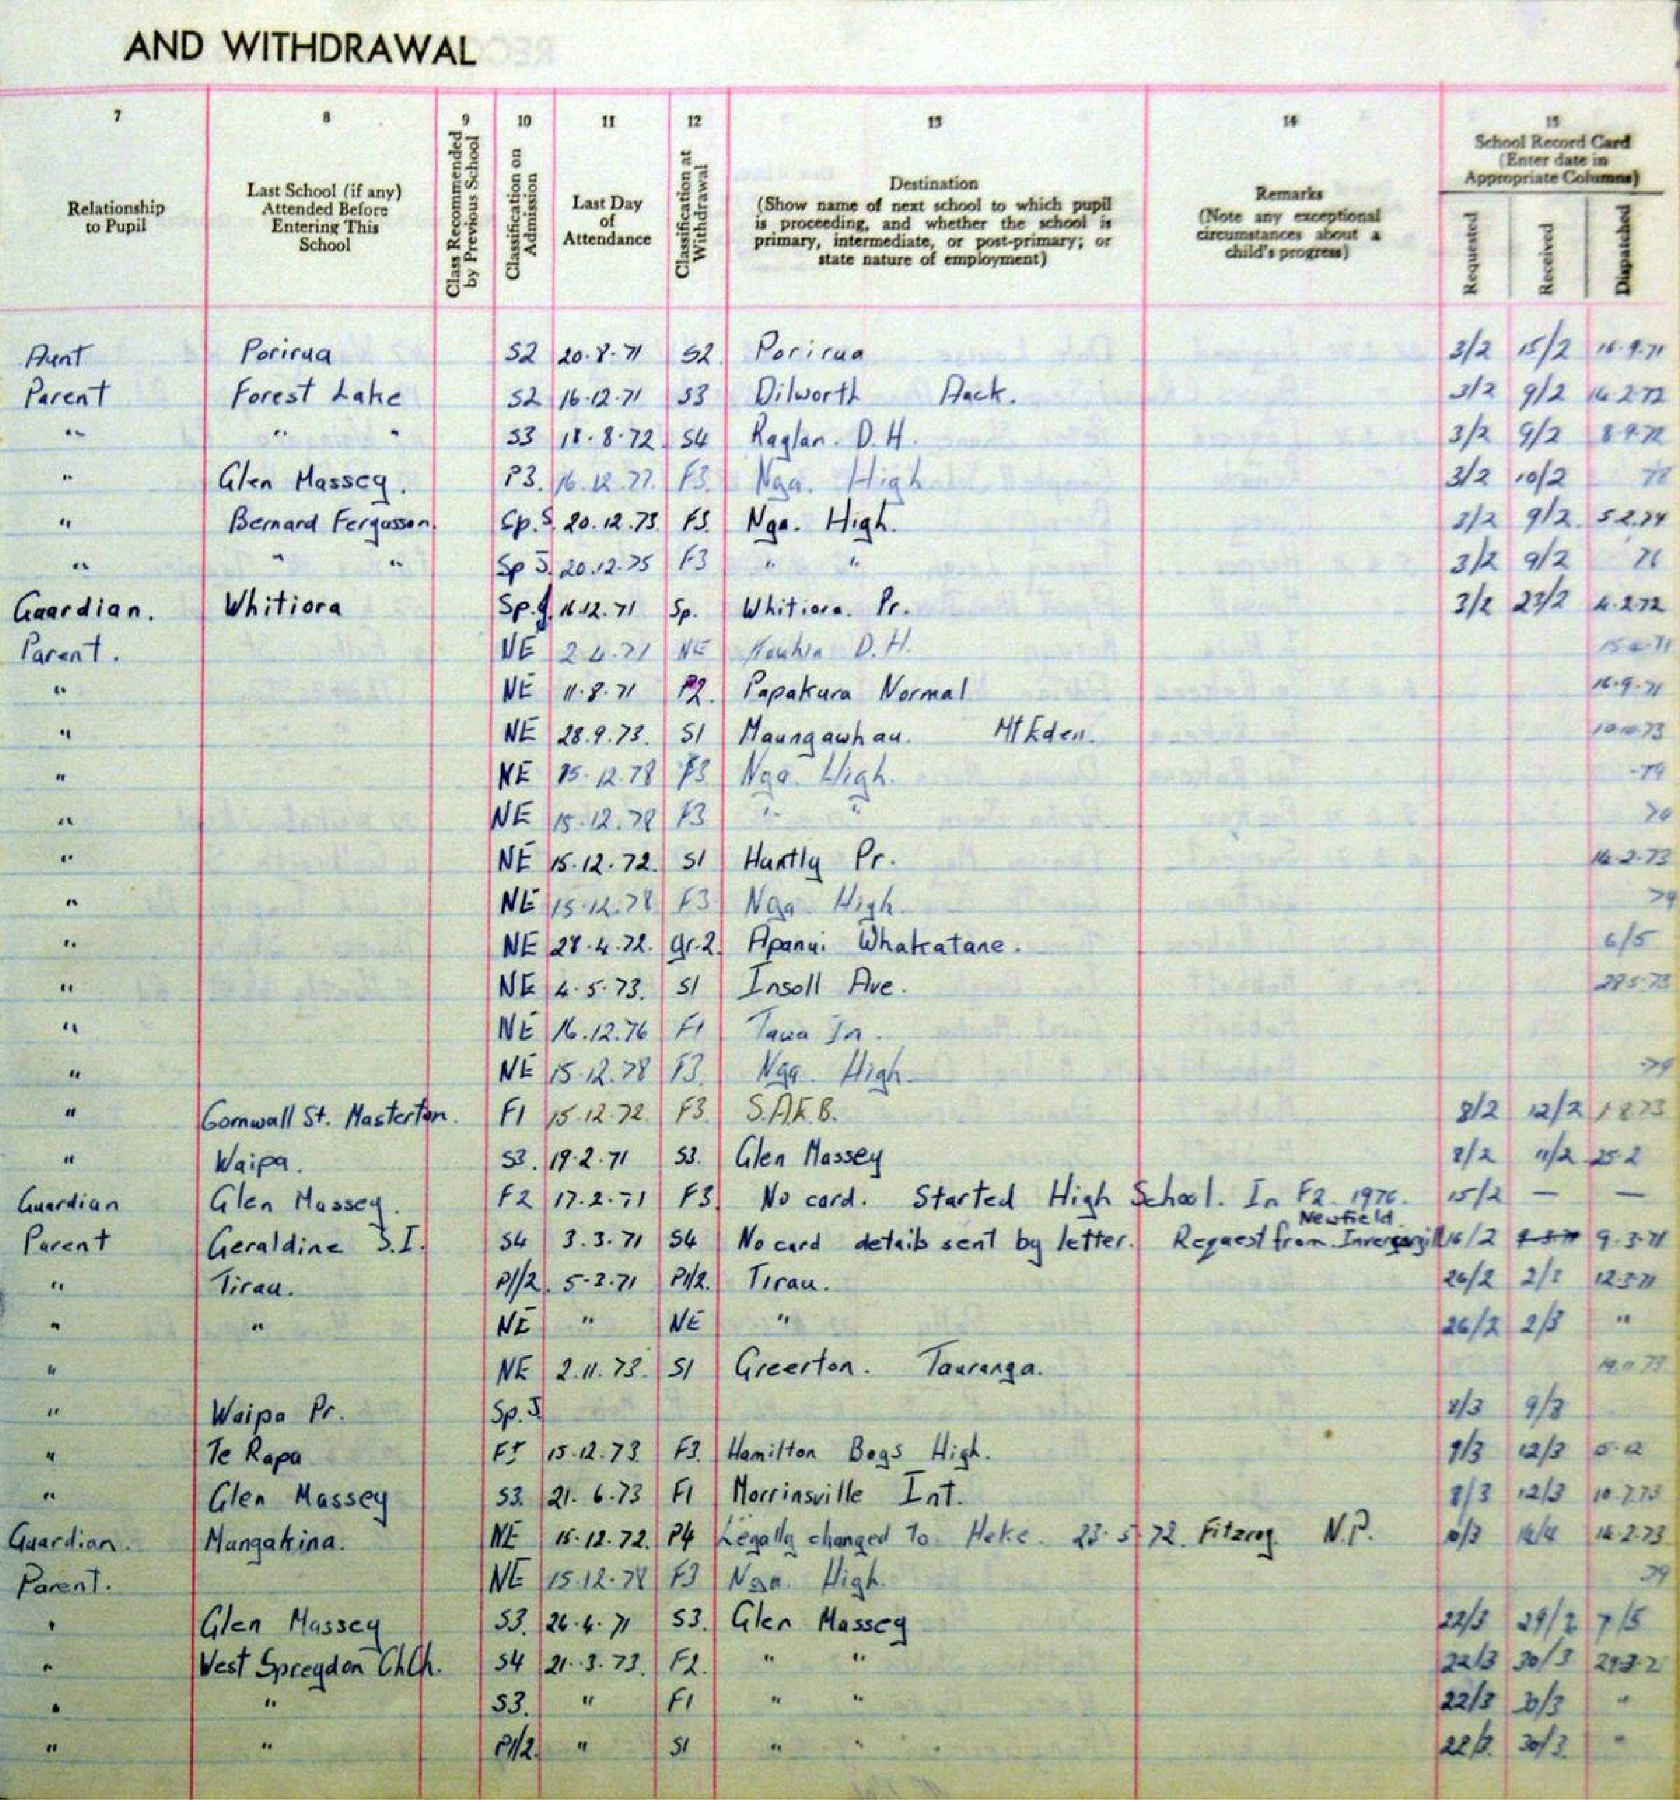 AND WITHDRAWAL
7 8 9 10 11 12 13 14 15
Relationship to Pupil
Last School (if any) Attended Before Entering This School
Class Recommended by Previous School
Classification on Admission
Last Day of Attendance
Classification at Withdrawal
Destination (Show name of next school to which pupil is proceeding, and whether the school is primary, intermediate, or post-primary; or state nature of employment)
Remarks (Note any exceptional circumstances about a child's progress)
School Record Card (Enter date in Appropriate Columns)
Requested Received Dispatched
Aunt Porirua S2 20.8.71 S2. Porirua 3/2 15/2 16.9.71
Parent Forest Lake S2 16.12.71 S3 Dilworth Auck. 3/2 9/2 16.2.72
" " " S3 18.8.72 S4 Raglan. D.H. 3/2 9/2 8.9.72
" Glen Massey. P3. 16.12.77. F3. Nga. High 3/2 10/2 78
" Bernard Fergusson. Sp.S. 20.12.73. F3. Nga. High. 3/2 9/2 5.2.74
" " " Sp J. 20.12.75 F3 " " 3/2 9/2 76
Guardian. Whitiora Sp.J. 16.12.71 Sp. Whitiora. Pr. 3/2 23/2 4.2.72
Parent. NE 2.4.71 NE D.H.
" NE 11.8.71 P2. Papakura Normal 16.9.71
" NE 28.9.73. S1 Maungawhau. Mt Eden. 73
" NE 15.12.78 F3 Nga. High. -79
" NE 15.12.78 F3 " "
" NE 15.12.72. S1 Huntly Pr. 14.2.73
" NE 15.12.78 F3 Nga. High. 79
" NE 28.4.72. gr.2. Apanui Whakatane. 6/5
" NE 4.5.73. S1 Insoll Ave. 28.5.73
" NE 16.12.76 F1 Tawa In.
" NE 15.12.78 F3. Nga. High. 79
" Cornwall St. Masterton. F1 15.12.72. F3. S.A.E.B. 8/2 12/2 1.8.73
" Waipa. S3. 19.2.71 S3. Glen Massey 8/2 11/2 25.2
Guardian Glen Massey. F2 17.2.71 F3. No card. Started High School. In F2. 1976. 15/2 — —
Newfield
Parent Geraldine S.I. S4 3.3.71 S4 No card details sent by letter. Request from Invercargill 16/2 9.3.71
" Tirau. P1/2. 5.3.71 P1/2. Tirau. 26/2 2/3 12.3.71
" " NE " NE " 26/2 2/3 "
" NE 2.11.73. S1 Greerton. Tauranga. 73
" Waipa Pr. Sp. J 8/3 9/3
" Te Rapa 15.12.73 F3. Hamilton Boys High. 9/3 12/3
" Glen Massey S3. 21.6.73 F1 Morrinsville Int. 8/3 12/3 10.7.73
Guardian. Mangakina. NE 15.12.72. P4 Legally changed to Heke. 23.5.72. Fitzroy N.P. 10/3 14/4 14.2.73
Parent. NE 15.12.78 F3 Nga. High. 79
" Glen Massey S3. 26.4.71 S3. Glen Massey 22/3 29/3 7/5
" West Spreydon ChCh. S4 21.3.73. F2. " " 22/3 30/3
" " S3. " F1 " " 22/3 30/3 "
" " P1/2. " S1 " " 22/3. 30/3. "